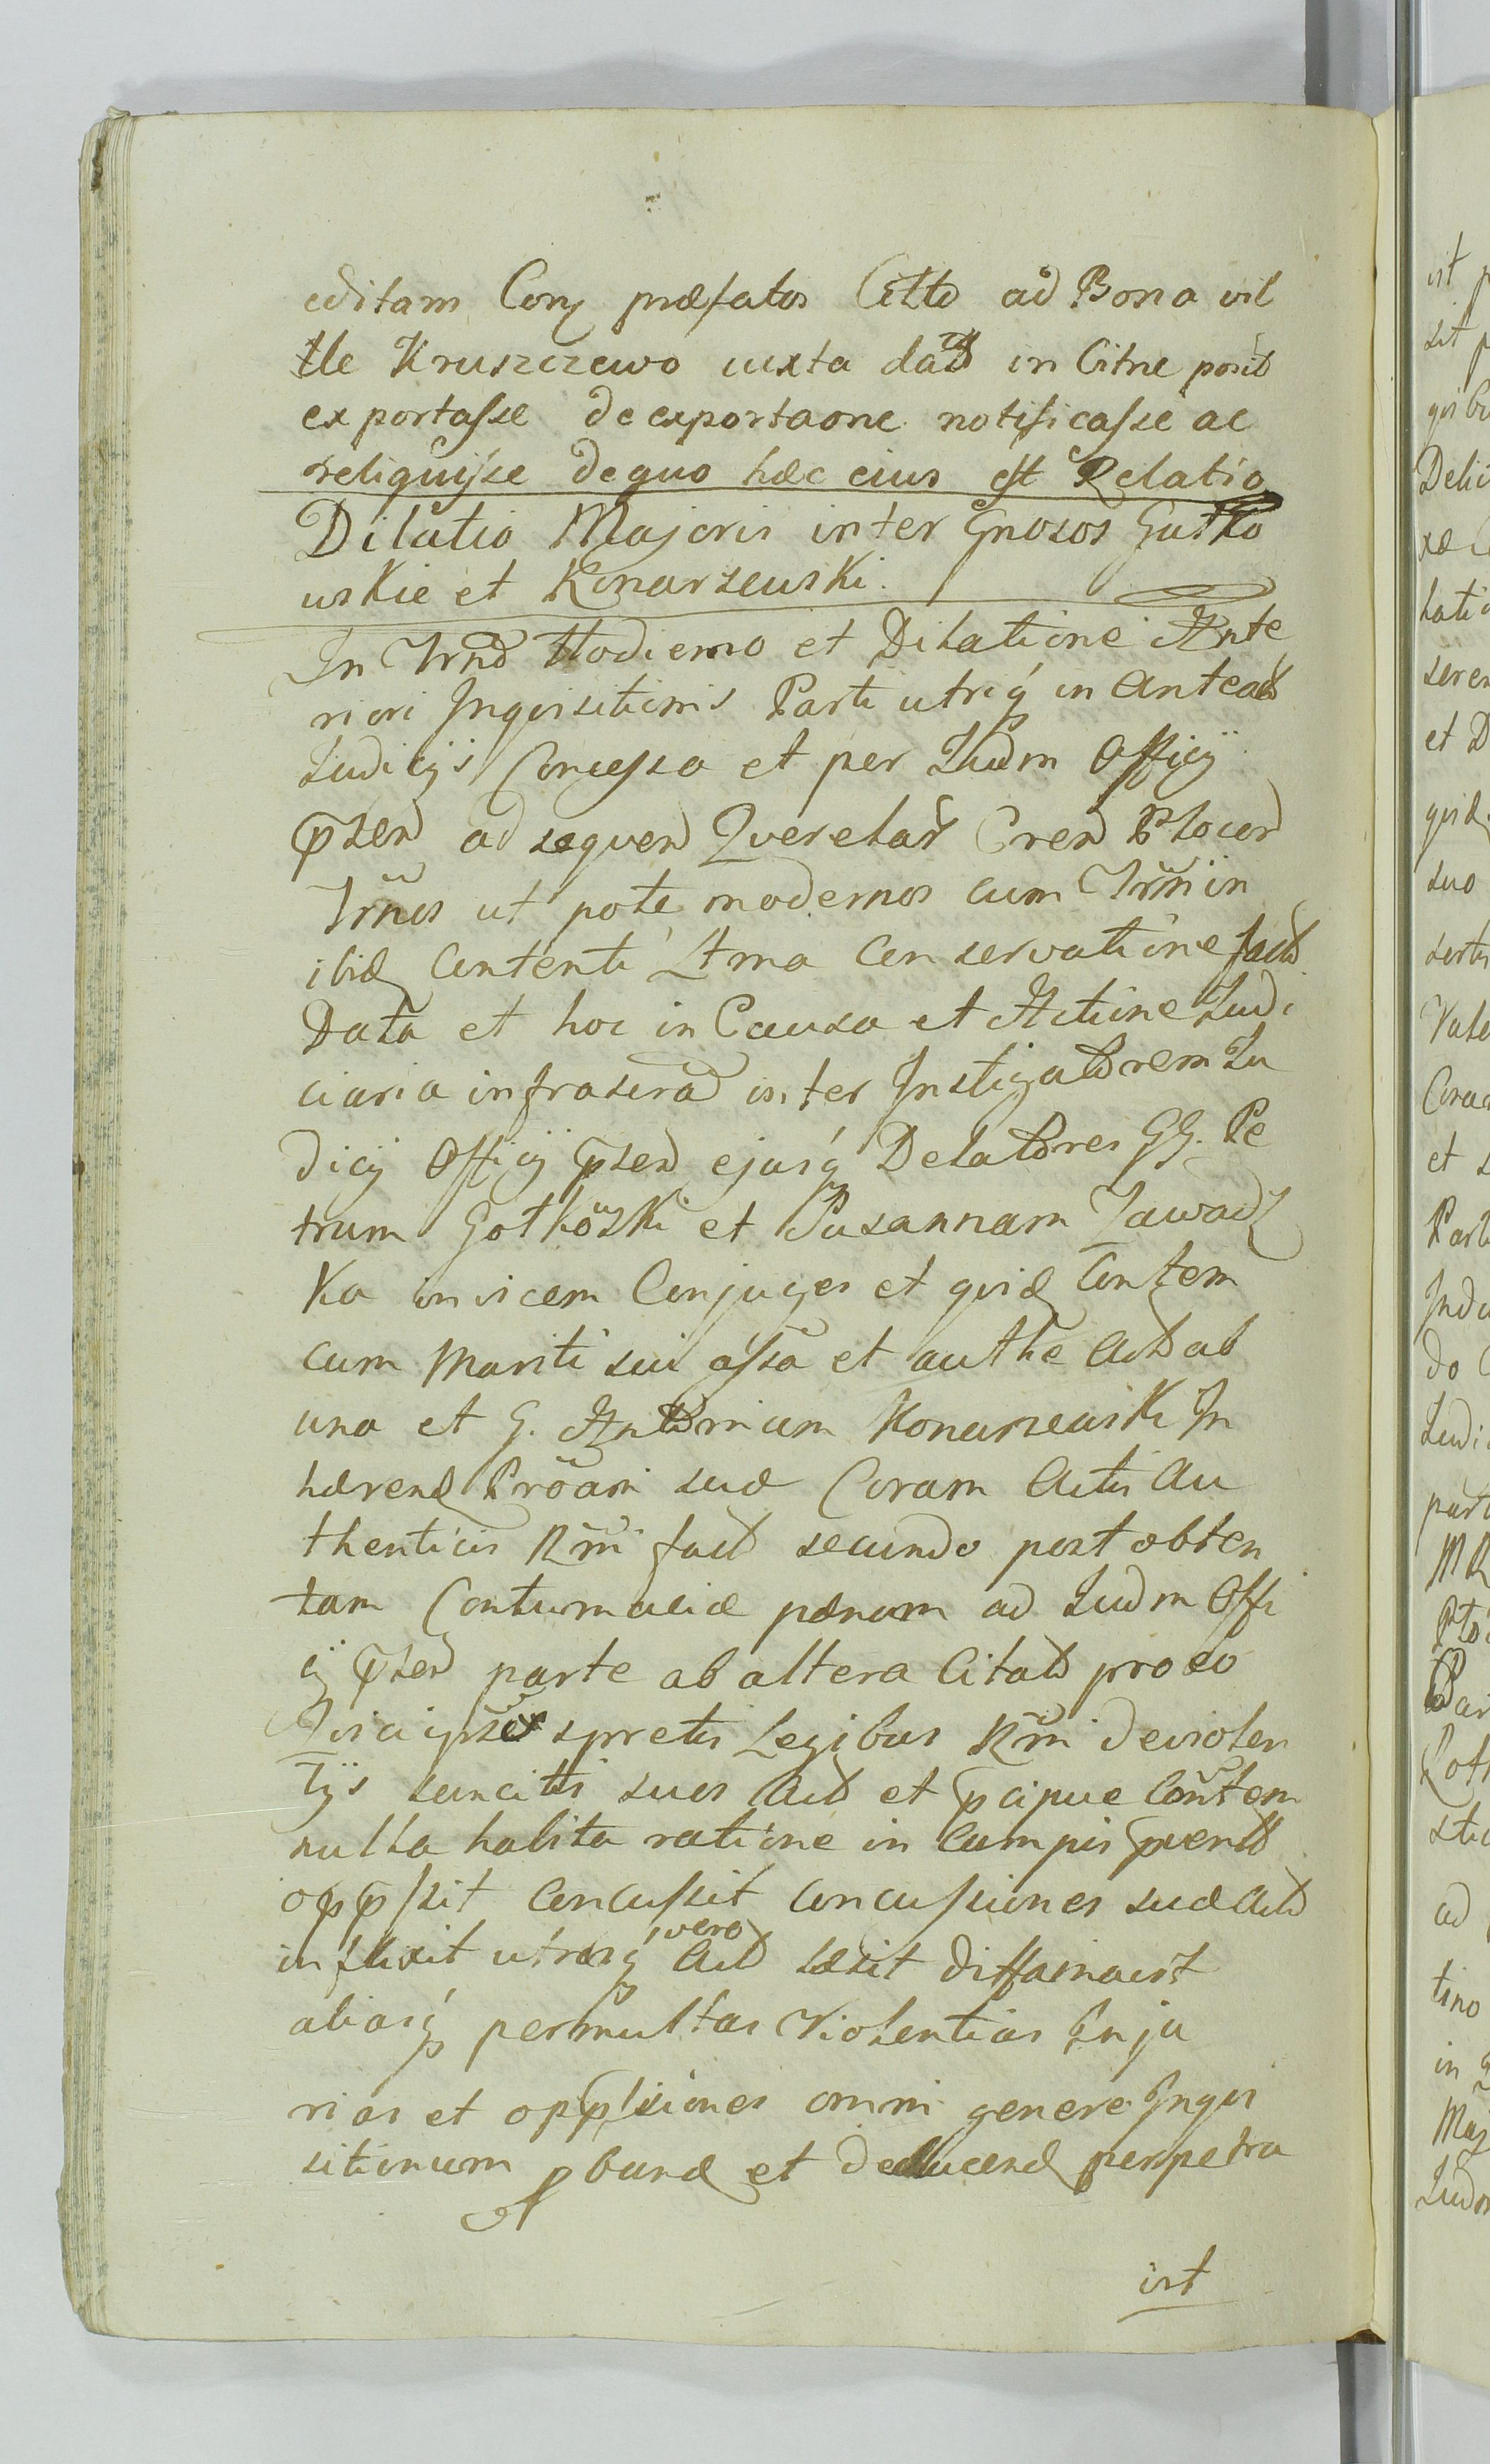 editam Conẛ præfatos Citto ad Bona vil
lle Kruszczewo iuxta datt in Citne posit
exportasse de exportaone notificasse ac
reliquisse de quo hæc eius est Relatio
Dilatio Majoris inter Gnosos Gutko
wskie et Konarzewski.
In Trnō Hodierno et Dilatione Ante
riori Inquisitionis Parti utriq́ in Anteatt
Judicijs Concessa et per Judm Officÿ
pnsen ad sequen Querelar Cren Plocen
Trños ut pote modernos cum Trmin
ibid Contenti Ltma Conservatione fact
Data et hoc in Causa et Actione Judi
ciaria infrascra inter Instigatorem Ju
dicÿ Officÿ pnsen ejusq́ Delatores GG. Pe
trum Gotkowski et Susannam Zawadz
ka invicem Conjuges et quid Contem
cum Mariti sui assa et authe Act ab
una et G. Antonium Konarzewski In
hærend Prõam suæ Coram Actis Au
thenticis Rm̃ fact secundo post obten
tam Contumaciæ pænam ad Judm Offi
cÿ pnsen parte ab altera Citat pro eo
spretis Legibus Rm̃ de violen
tÿs sancitis suos Act et pcipue Contem
nulla habita ratione in Campis
oppssit Concussit concussiones suæ Act
inflixit utrosq́ vero Act læsit diffamavit
aliasq́ permultas Violentias Inju
rias et oppssiones omni genere Inqui
sitionum pband et deducend perpetra
ist
ist
sit
Delic
hati
seren
et D
suo
Cora
et
Part
do
Judi
part
ad
tino
in
Maj